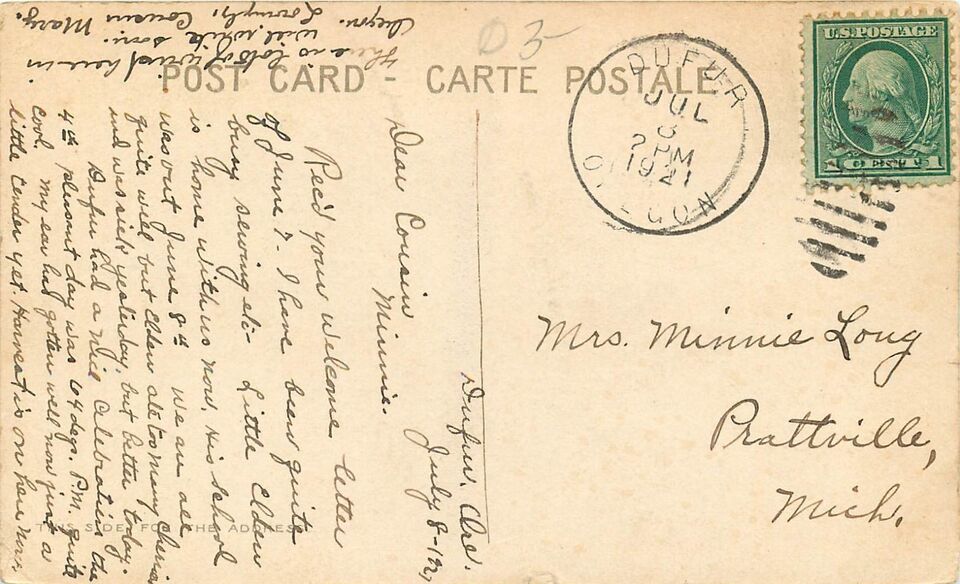 POST CARD - CARTE POSTALE
D 3-
DUFUR
JUL
8
2 PM
1921
OREGON
U.S. POSTAGE
1 CENTS 1
Mrs. Minnie Long
Prattville,
Mich.
Dufur, Ore.
July, 8-1921
Dear Cousin
Minnie.
Rec'd your welcome letter
of June 7. I have been quite
busy sewing etc- Little Elden
is home with us now. His school
was out June 8th We are all
quite well but Elden ate too many cherries
and was sick yesterday. but better today.
Dufur had a nice celebration the
4th pleasant day was 64 degs. P.M. quite
cool. My ear had gotten well now just a
little tender yet. Harvest is on here now.
There is lots of fruit here in
Oregon. will write soon.
Lovingly, Cousin Mary.
THIS SIDE FOR THE ADDRESS